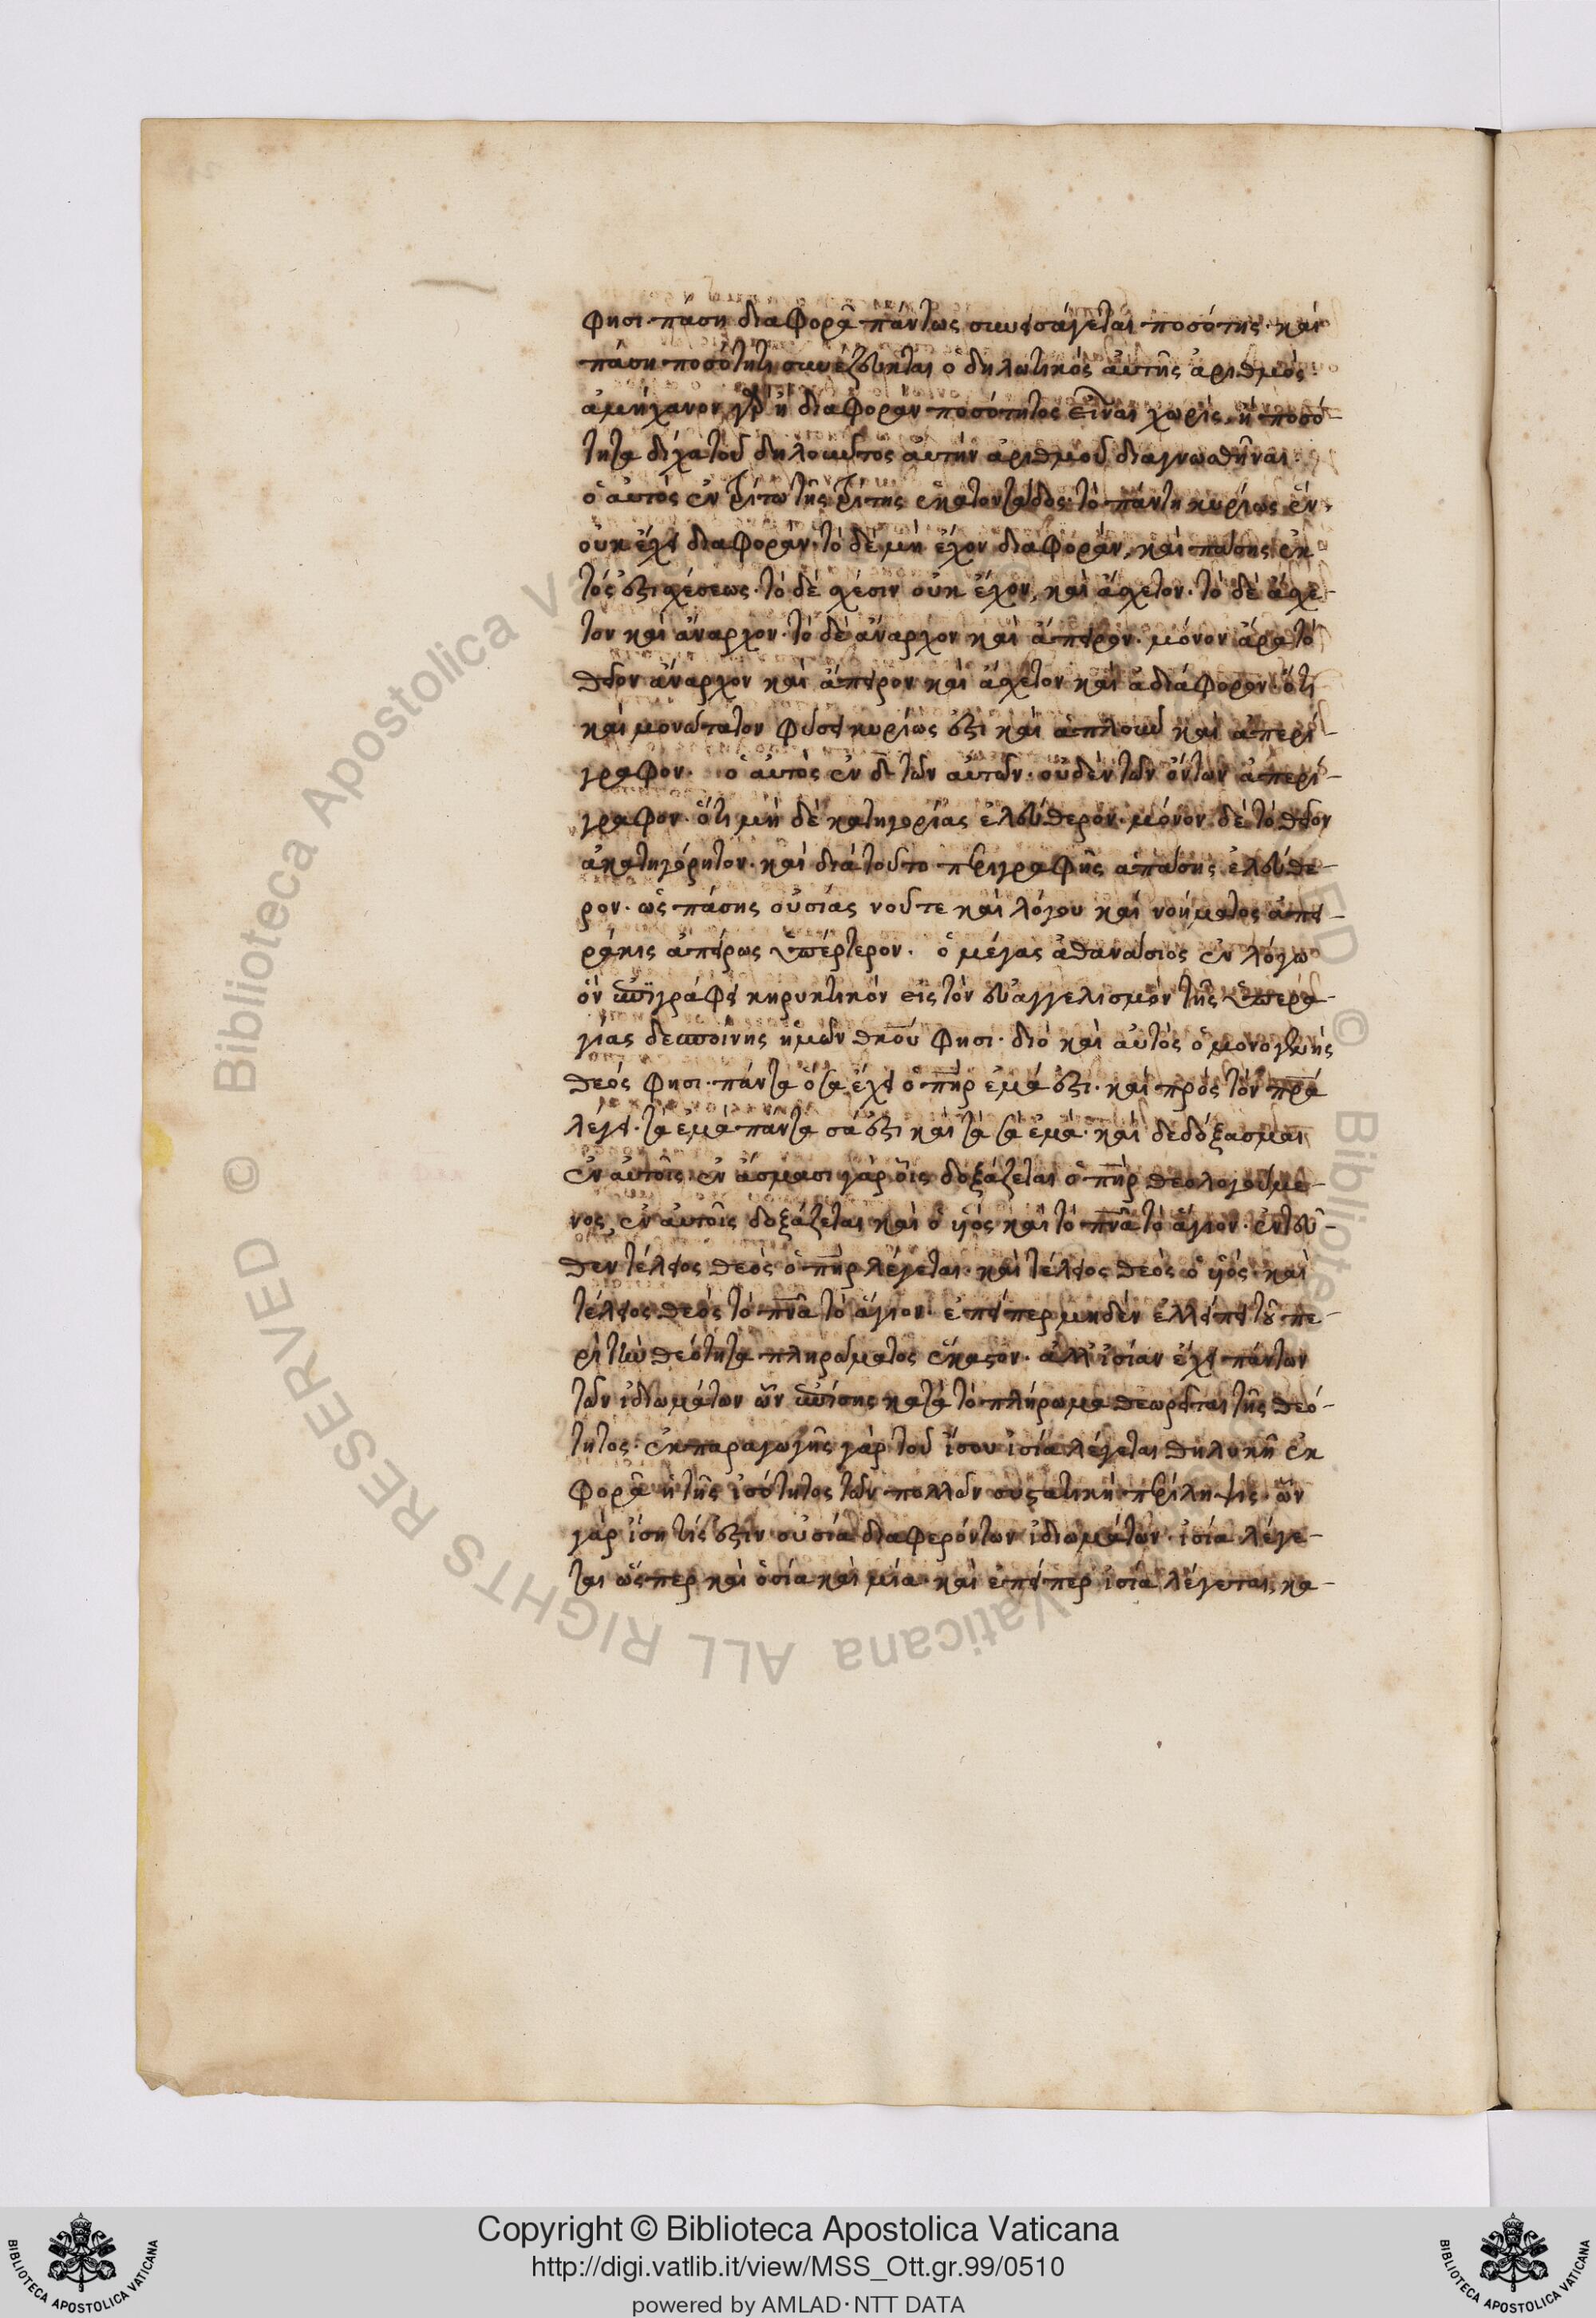 φησι πάση διαφορᾷ πάντως συνεισάγεται ποσότης· καὶ
πάση ποσότητι συνέζευκται ὁ δηλωτικὸς αὐτῆς ἀριθμὸς·
ἀμήχανον γὰρ ἢ διαφορὰν ποσότητος εἶναι χωρὶς, ἢ ποσό-
τητα δίχα τοῦ δηλοῦντος αὐτὴν ἀριθμοῦ διαγνωσθῆναι·
ὁ αὐτὸς ἐν τρίτω τῆς τρίτης ἑκατοντάδος· τὸ πάντη κυρίως ἓν,
οὐκ ἔχει διαφορὰν· τὸ δὲ μὴ ἔχον διαφορὰν, καὶ πάσης ἐκ
τός ἐστι σχέσεως· τὸ δὲ σχέσιν οὐκ ἔχον, καὶ ἄσχετον· τὸ δὲ ἄσχε-
τον καὶ ἄναρχον· τὸ δὲ ἄναρχον καὶ ἄπειρον· μόνον ἄρα τὸ
θεῖον ἄναρχον καὶ ἄπειρον καὶ ἄσχετον καὶ ἀδιάφορον· ὅτι
καὶ μονώτατον φύσει κυρίως ἐστὶ καὶ ἁπλοῦν καὶ ἀπερί-
γραφον· ὁ αὐτὸς ἐν δ τῶν αὐτῶν· οὐδὲν τῶν ὄντων ἀπερί-
γραφον· ὅτι μὴ δὲ κατηγορίας ἐλεύθερον· μόνον δὲ τὸ θεῖον
ἀκατηγόρητον· καὶ διὰ τοῦτο περιγραφῆς ἁπάσης ἐλεύθε-
ρον· ὡς πάσης οὐσίας νοῦ τε καὶ λόγου καὶ νοήματος ἀπει-
ράκις ἀπείρως ὑπέρτερον· ὁ μέγας ἀθανάσιος ἐν λόγω
ὃν ἐπιγράφει κηρυκτικὸν εἰς τὸν εὐαγγελισμὸν τῆς ὑπερα-
γίας δεσποίνης ἡμῶν θκου φησι· διὸ καὶ αὐτὸς ὁ μονογενὴς
θεός φησι· πάντα ὅσα ἔχει ὁ πηρ ἐμά ἐστι· καὶ πρὸς τὸν πρα
λέγει· τὰ ἐμὰ πάντα σά ἐστι καὶ τὰ σὰ ἐμὰ· καὶ δεδόξασμαι
ἐν αὐτοῖς· ἐν ἄσμασι γὰρ οἷς δοξάζεται ὁ πηρ θεολογούμε-
νος, ἐν αὐτοῖς δοξάζεται καὶ ὁ υἱὸς καὶ τὸ πνα τὸ ἅγιον· ἐντεῦ-
θεν τέλειος θεὸς ὁ πηρ λέγεται· καὶ τέλειος θεὸς ὁ υἱός· καὶ
τέλειος θεὸς τὸ πνα τὸ ἅγιον· ἐπείπερ μηδὲν ἐλλείπει τοῦ πε-
ρὶ τὴν θεότητα πληρώματος ἕκαστον· ἀλλ' ἰσίαν ἔχει πάντων
τῶν ἰδιωμάτων ὧν ἐπίσης κατὰ τὸ πλήρωμα θεωρεῖται τῆς θεό-
τητος· ἐκ παραγωγῆς γὰρ τοῦ ἴσου ἰσία λέγεται θηλυκῆ ἐκ
φορᾷ ἡ τῆς ἰσότητος τῶν πολλῶν συστατικὴ περίληψις· ὧν
γὰρ ἴση τίς ἐστιν οὐσία διαφερόντων ἰδιωμάτων· ἰσία λέγε-
ται ὥσπερ καὶ ὁσία καὶ μία· καὶ ἐπείπερ ἰσία λέγεται, κα-
Copyright © Biblioteca Apostolica Vaticana
http://digi.vatlib.it/view/MSS_Ott.gr.99/0510
powered by AMLAD·NTT DATA